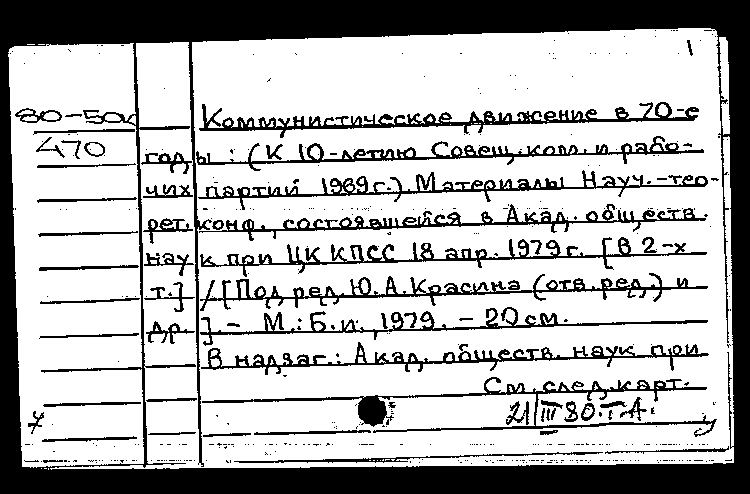 1
80-50к
Коммунистическое движение в 70-е
470
годы : (К 10-летию Совещ. ком. и рабо-
чих партий 1969 г.). Материалы Науч.-тео-
рет. конф., состоявшейся в Акад. обществ.
наук при ЦК КПСС 18 апр. 1979 г. [В 2-х
т.] / [Под ред. Ю. А. Красина (отв. ред.) и
др.]. - М. : Б. и., 1979. - 20 см.
В надзаг.: Акад. обществ. наук при
См. след. карт.
21/III 80. Т.А.